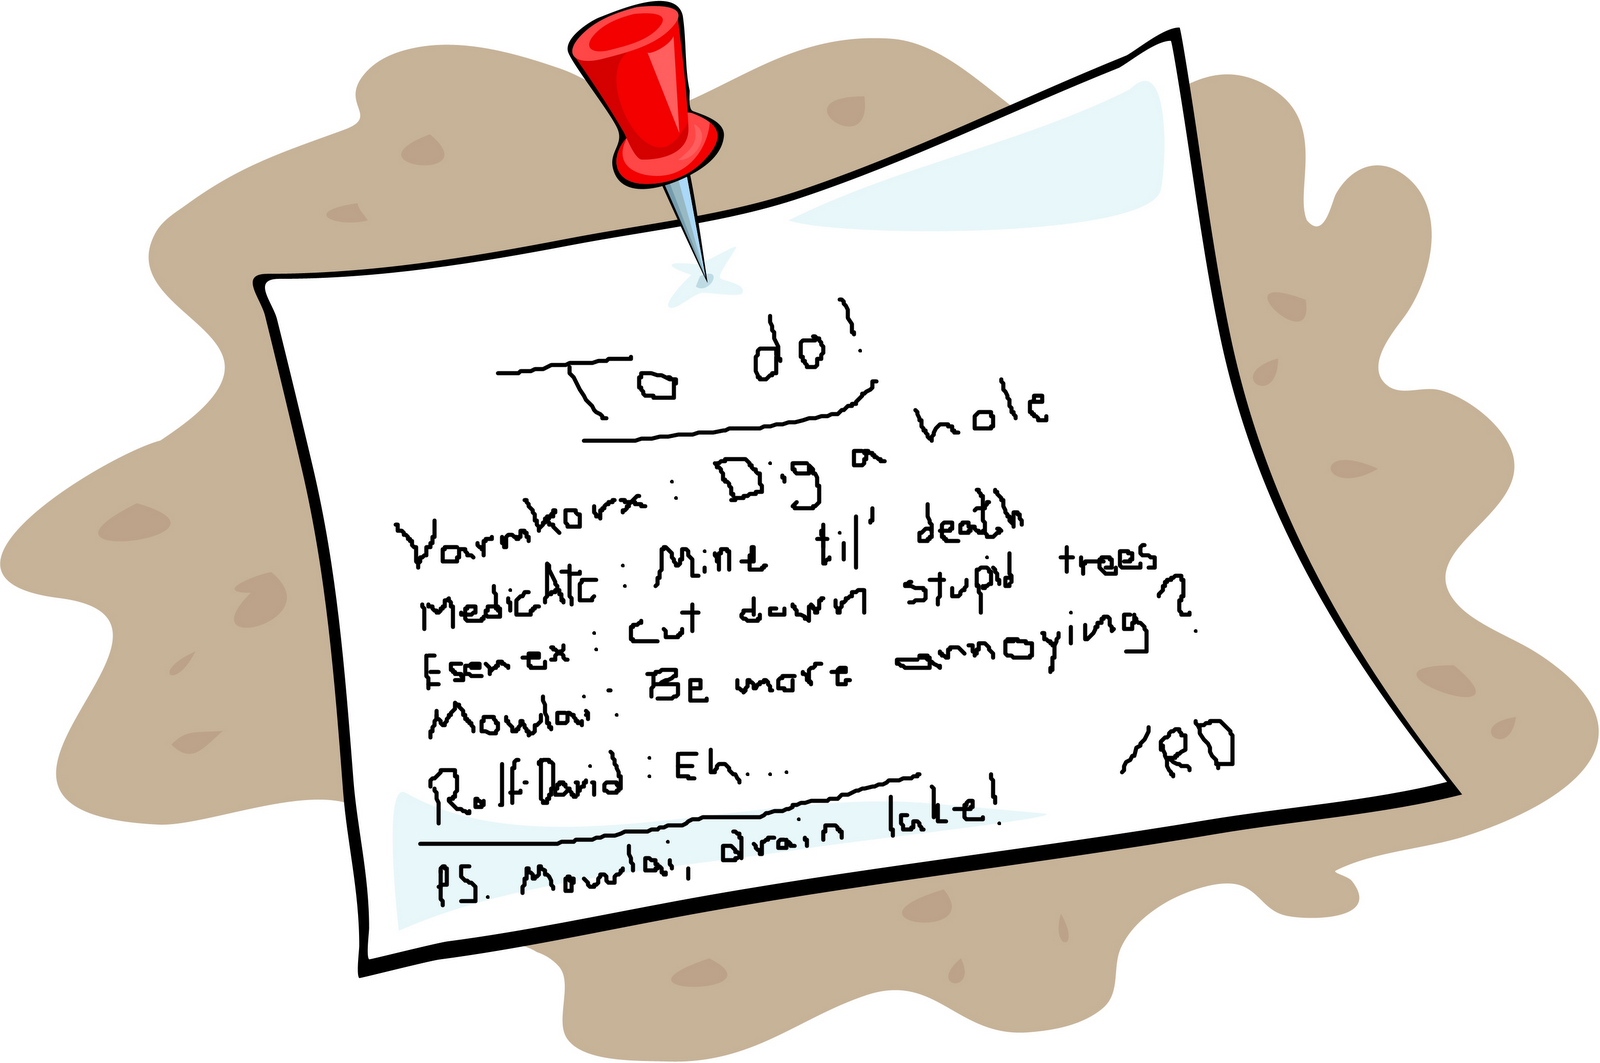 To do!
Varmkorx: Dig a hole
MedicAtc: Mine til' death
Esenex: Cut down stupid trees
Mowlai: Be more annoying?
Rolf-David: Eh...
/RD
PS. Mowlai, drain lake!